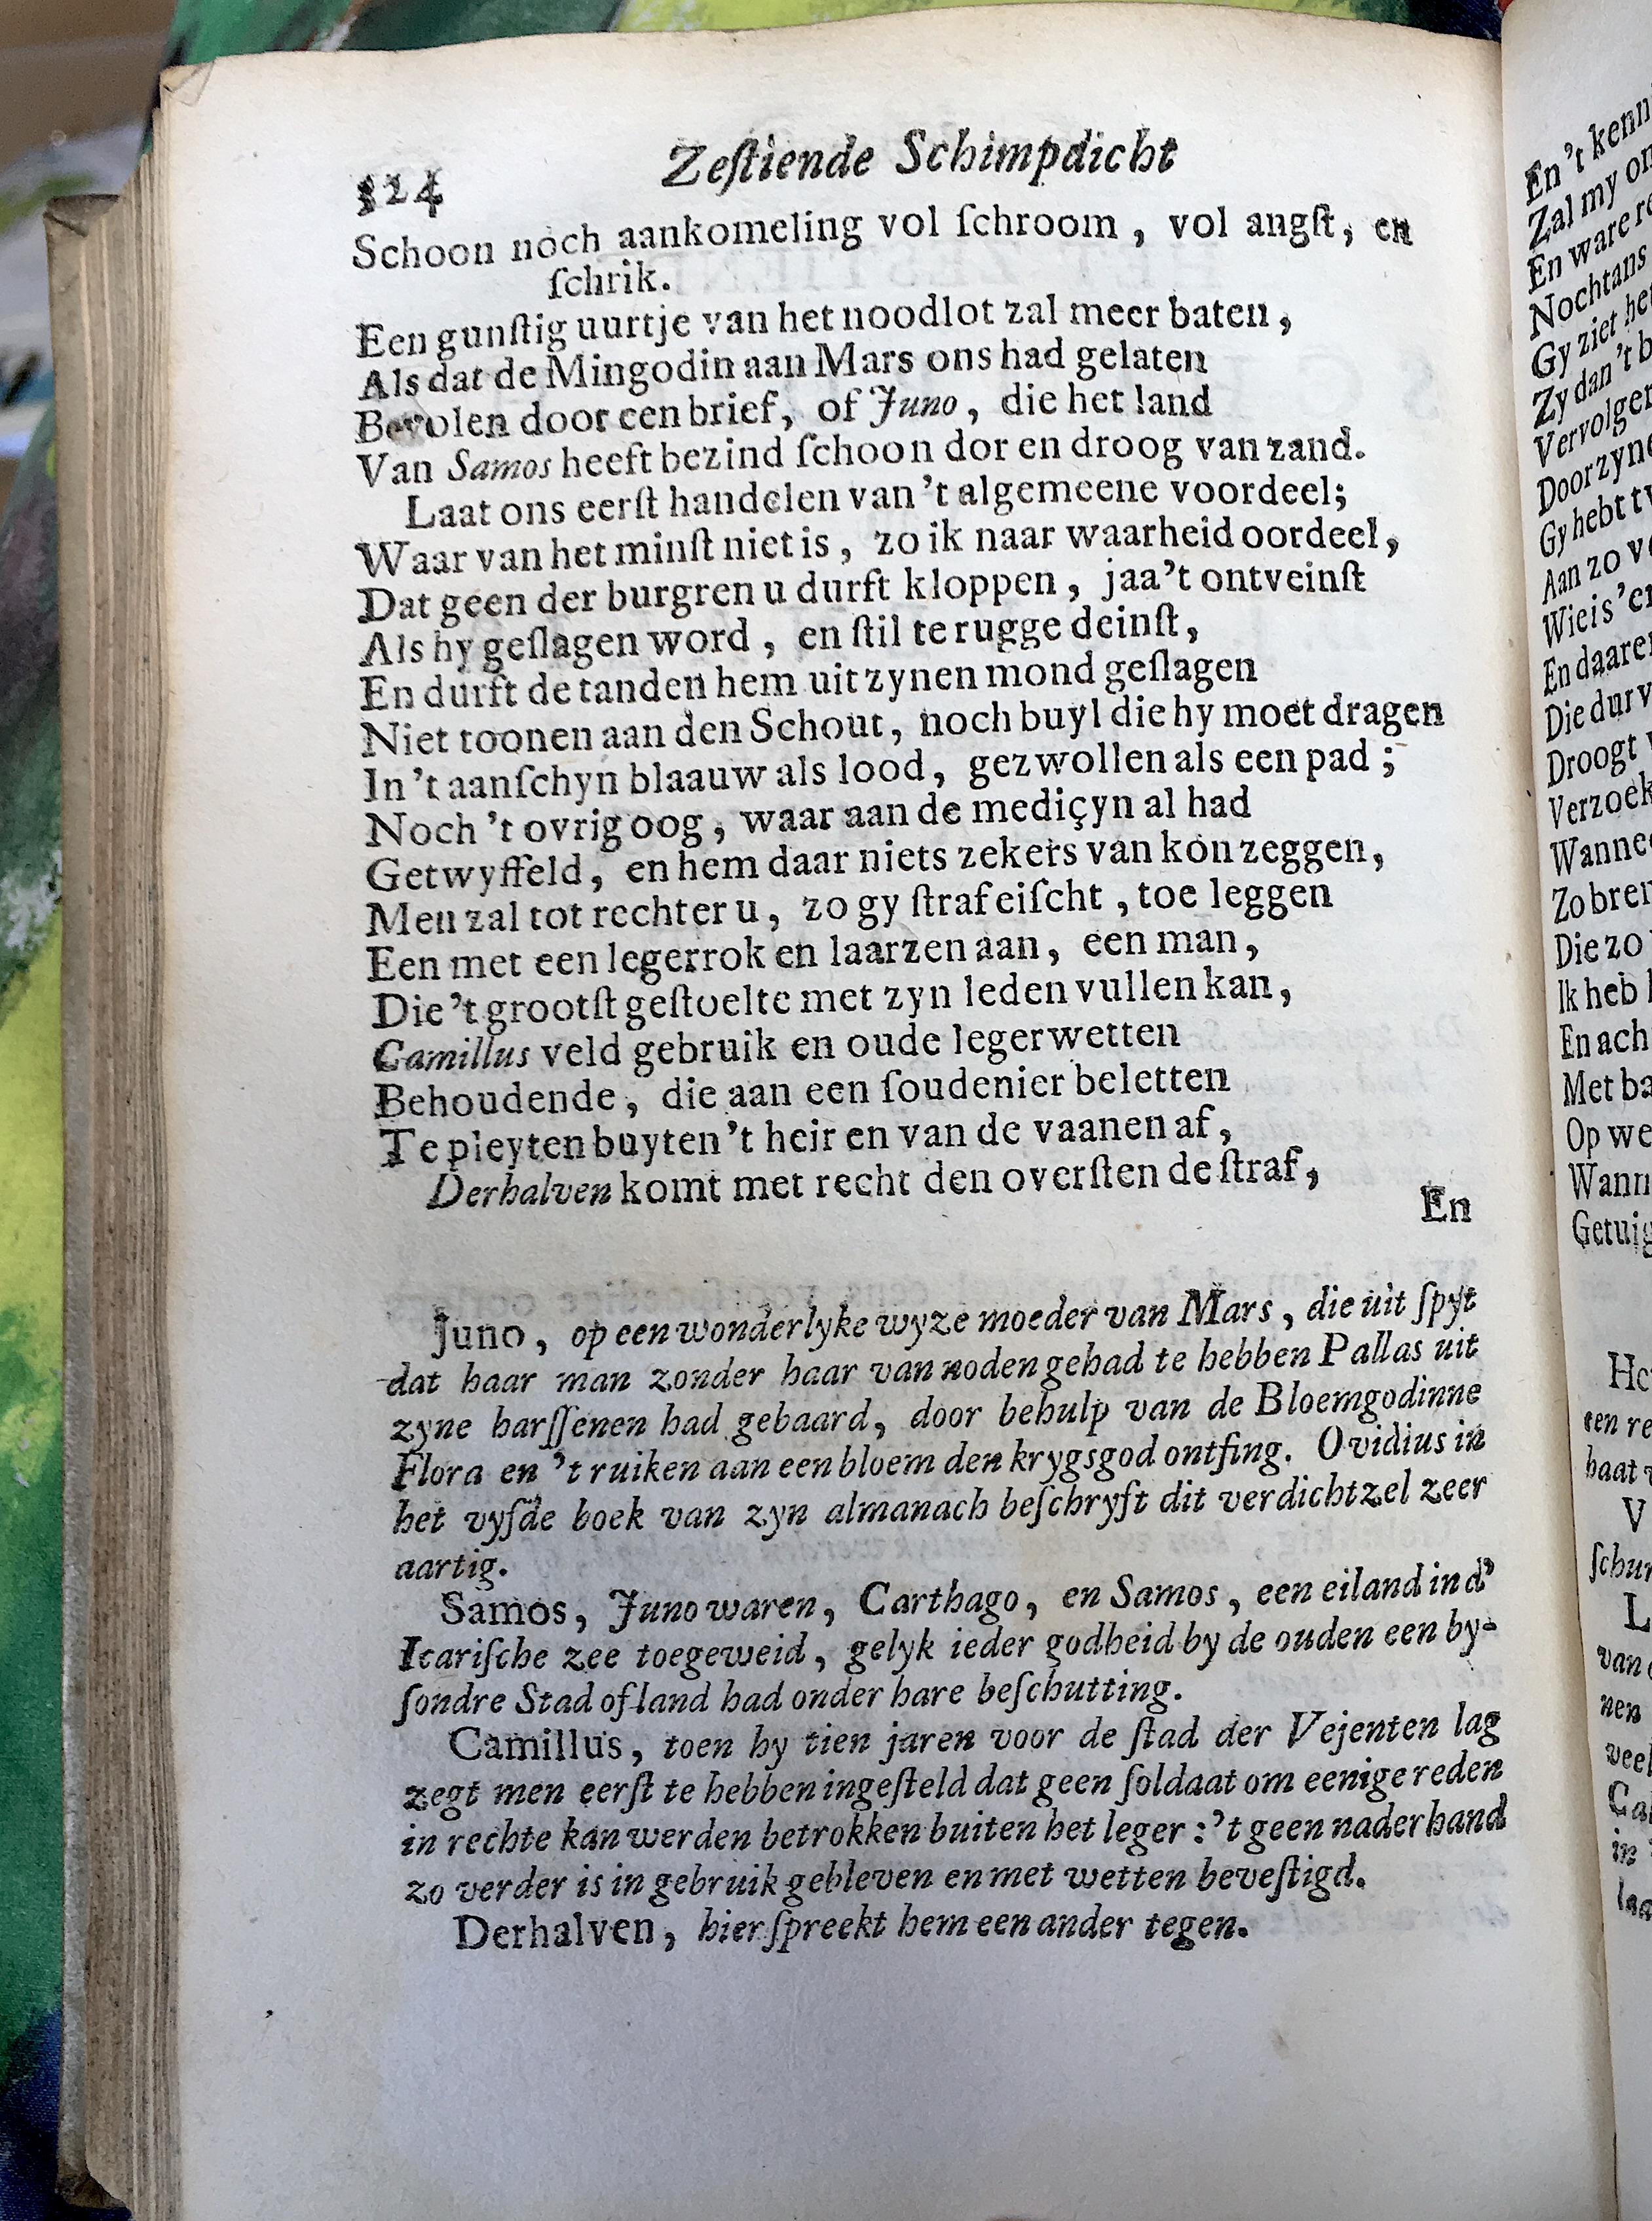 324
Zeſtiende Schimpdicht
Schoon noch aankomeling vol ſchroom, vol angſt, en
ſchrik.
Een gunſtig uurtje van het noodlot zal meer baten,
Als dat de Mingodin aan Mars ons had gelaten
Bevolen door een brief, of Juno, die het land
Van Samos heeft bezind ſchoon dor en droog van zand.
Laat ons eerſt handelen van 't algemeene voordeel;
Waar van het minſt niet is, zo ik naar waarheid oordeel,
Dat geen der burgren u durft kloppen, jaa 't ontveinſt
Als hy geſlagen word, en ſtil te rugge deinſt,
En durft de tanden hem uit zynen mond geſlagen
Niet toonen aan den Schout, noch buyl die hy moet dragen
In 't aanſchyn blaauw als lood, gezwollen als een pad;
Noch 't ovrig oog, waar aan de mediçyn al had
Getwyffeld, en hem daar niets zekers van kon zeggen,
Men zal tot rechter u, zo gy ſtraf eiſcht, toe leggen
Een met een legerrok en laarzen aan, een man,
Die 't grootſt geſtoelte met zyn leden vullen kan,
Camillus veld gebruik en oude legerwetten
Behoudende, die aan een ſoudenier beletten
Te pleyten buyten 't heir en van de vaanen af,
Derhalven komt met recht den overſten de ſtraf,
En
Juno, op een wonderlyke wyze moeder van Mars, die uit ſpyt
dat haar man zonder haar van noden gehad te hebben Pallas uit
zyne harſſenen had gebaard, door behulp van de Bloemgodinne
Flora en 't ruiken aan een bloem den krygsgod ontfing. Ovidius in
het vyfde boek van zyn almanach beſchryft dit verdichtzel zeer
aartig.
Samos, Juno waren, Carthago, en Samos, een eiland in d'
Icariſche zee toegeweid, gelyk ieder godheid by de ouden een by-
ſondre Stad of land had onder hare beſchutting.
Camillus, toen hy tien jaren voor de ſtad der Vejenten lag
zegt men eerſt te hebben ingeſteld dat geen ſoldaat om eenige reden
in rechte kan werden betrokken buiten het leger: 't geen naderhand
zo verder is in gebruik gebleven en met wetten beveſtigd.
Derhalven, hier ſpreekt hem een ander tegen.
En 't
Zal my
En ware
Nochtans
Gy ziet
Zy dan 't
Door
Gy hebt
Aan zo
Wie is
Die
Droogt
Die zo
Ik heb
Met
Op